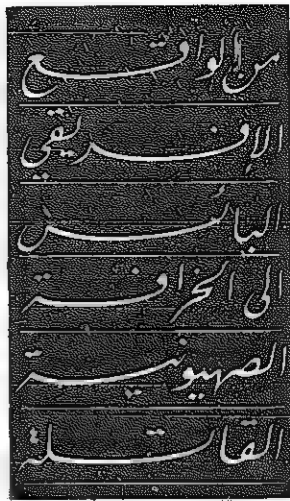 من الواقع
الإفريقي
البائس
الى الخرافة
الصهيونية
القاتلة